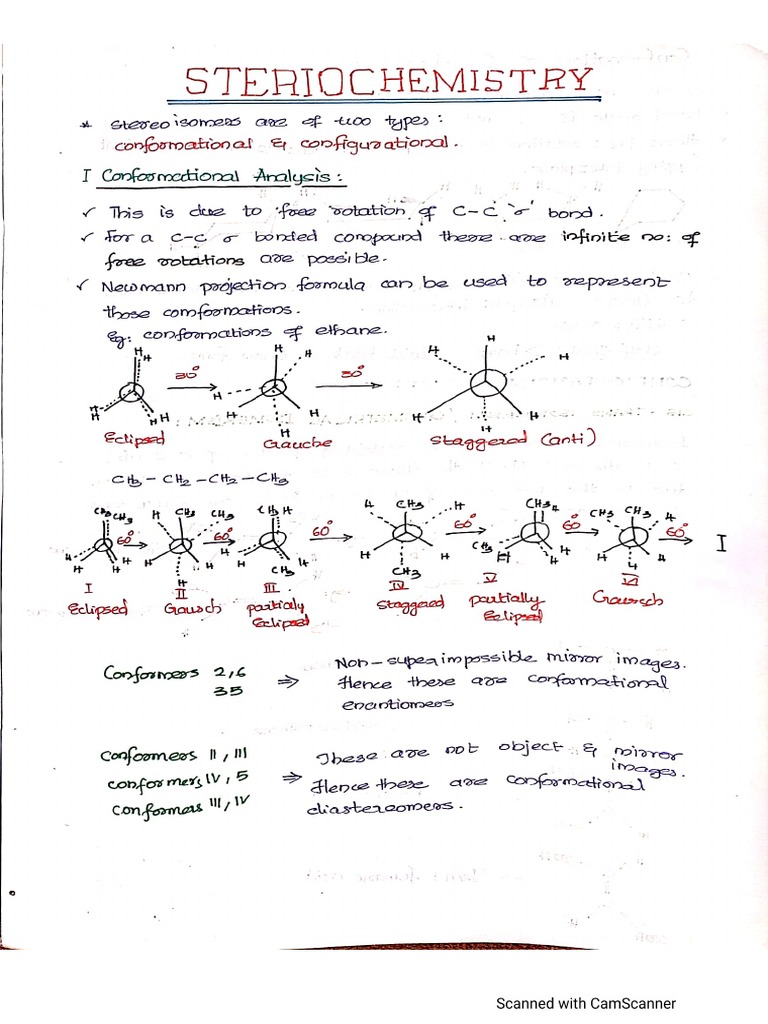 STERIOCHEMISTRY
* Stereoisomers are of two types:
conformational & configurational.
I Conformational Analysis:
✓ This is due to free rotation of C-C 'σ' bond.
✓ For a C-C σ bonded compound there are infinite no: of
free rotations are possible.
✓ Newmann projection formula can be used to represent
those comformations.
Eg: conformations of ethane.
H H H H H H H
30° 30°
H H H H H H
H H
H H H
Eclipsed Gauche Staggered (anti)
CH3 - CH2 - CH2 - CH3
CH3 CH3 H CH3 CH3 CH3 H H CH3 H CH3 H CH3 CH3 H
60° 60° 60° 60° 60° 60° I
H H H H H H H CH3 H H H CH3 H H H H
H CH3 H
I II III IV V VI
Eclipsed Gausch partially Eclipsed Staggered partially Eclipsed Gausch
Conformers 2,6
35
⇒ Non-superimpossible mirror images.
Hence these are conformational
enantiomers
Conformers II, III
conformers IV, 5
Conformers III, IV
⇒ These are not object & mirror
images.
Hence these are conformational
diastereomers.
Scanned with CamScanner